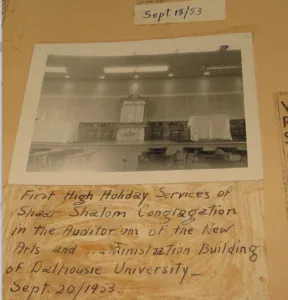 Sept. 18/53
First High Holiday Services of
Shaar Shalom Congregation
in the Auditorium of the New
Arts and ... Administration Building
of Dalhousie University_
Sept. 20/1953